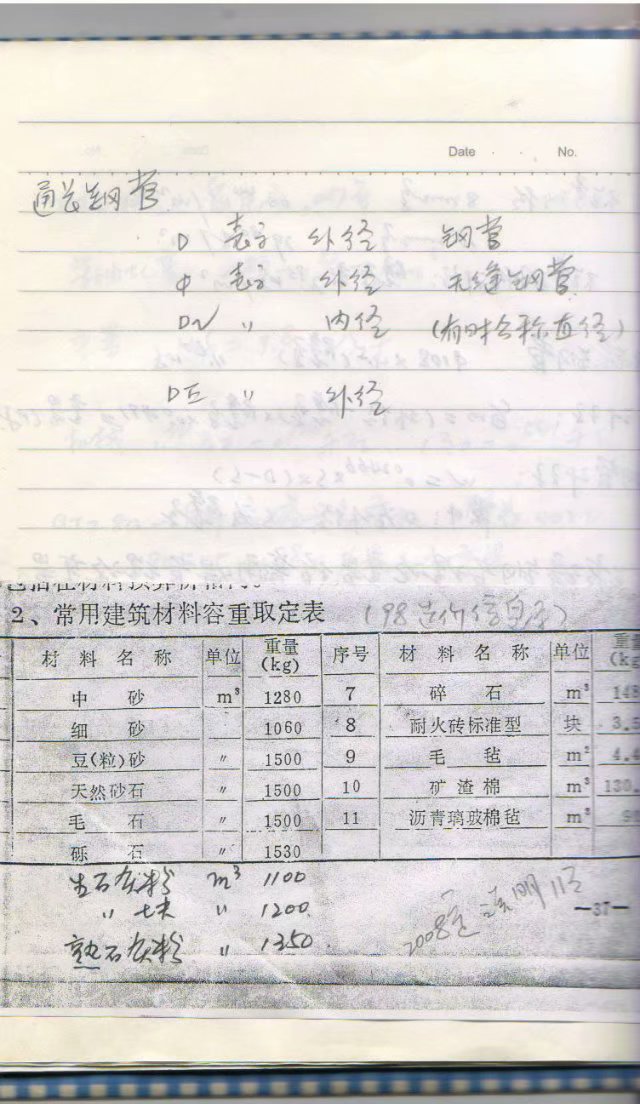 Date No.
通长钢管
D 表示 外径 钢管
Φ 表示 外径 无缝钢管
DN 〃 内径 (有时公称直径)
DE 〃 外径
2、常用建筑材料容重取定表 (98造价信息
材料名称 单位 重量(kg) 序号 材料名称 单位
中砂 m³ 1280 7 碎石 m³
细砂 〃 1060 8 耐火砖标准型 块 3.5
豆(粒)砂 〃 1500 9 毛毡 m² 4.4
天然砂石 〃 1500 10 矿渣棉 m³ 130.
毛石 〃 1500 11 沥青璃玻棉毡 m³
砾石 〃 1530
生石灰粉 m³ 1100
〃 块 〃 1200
熟石灰粉 〃 1350
2008
—37—